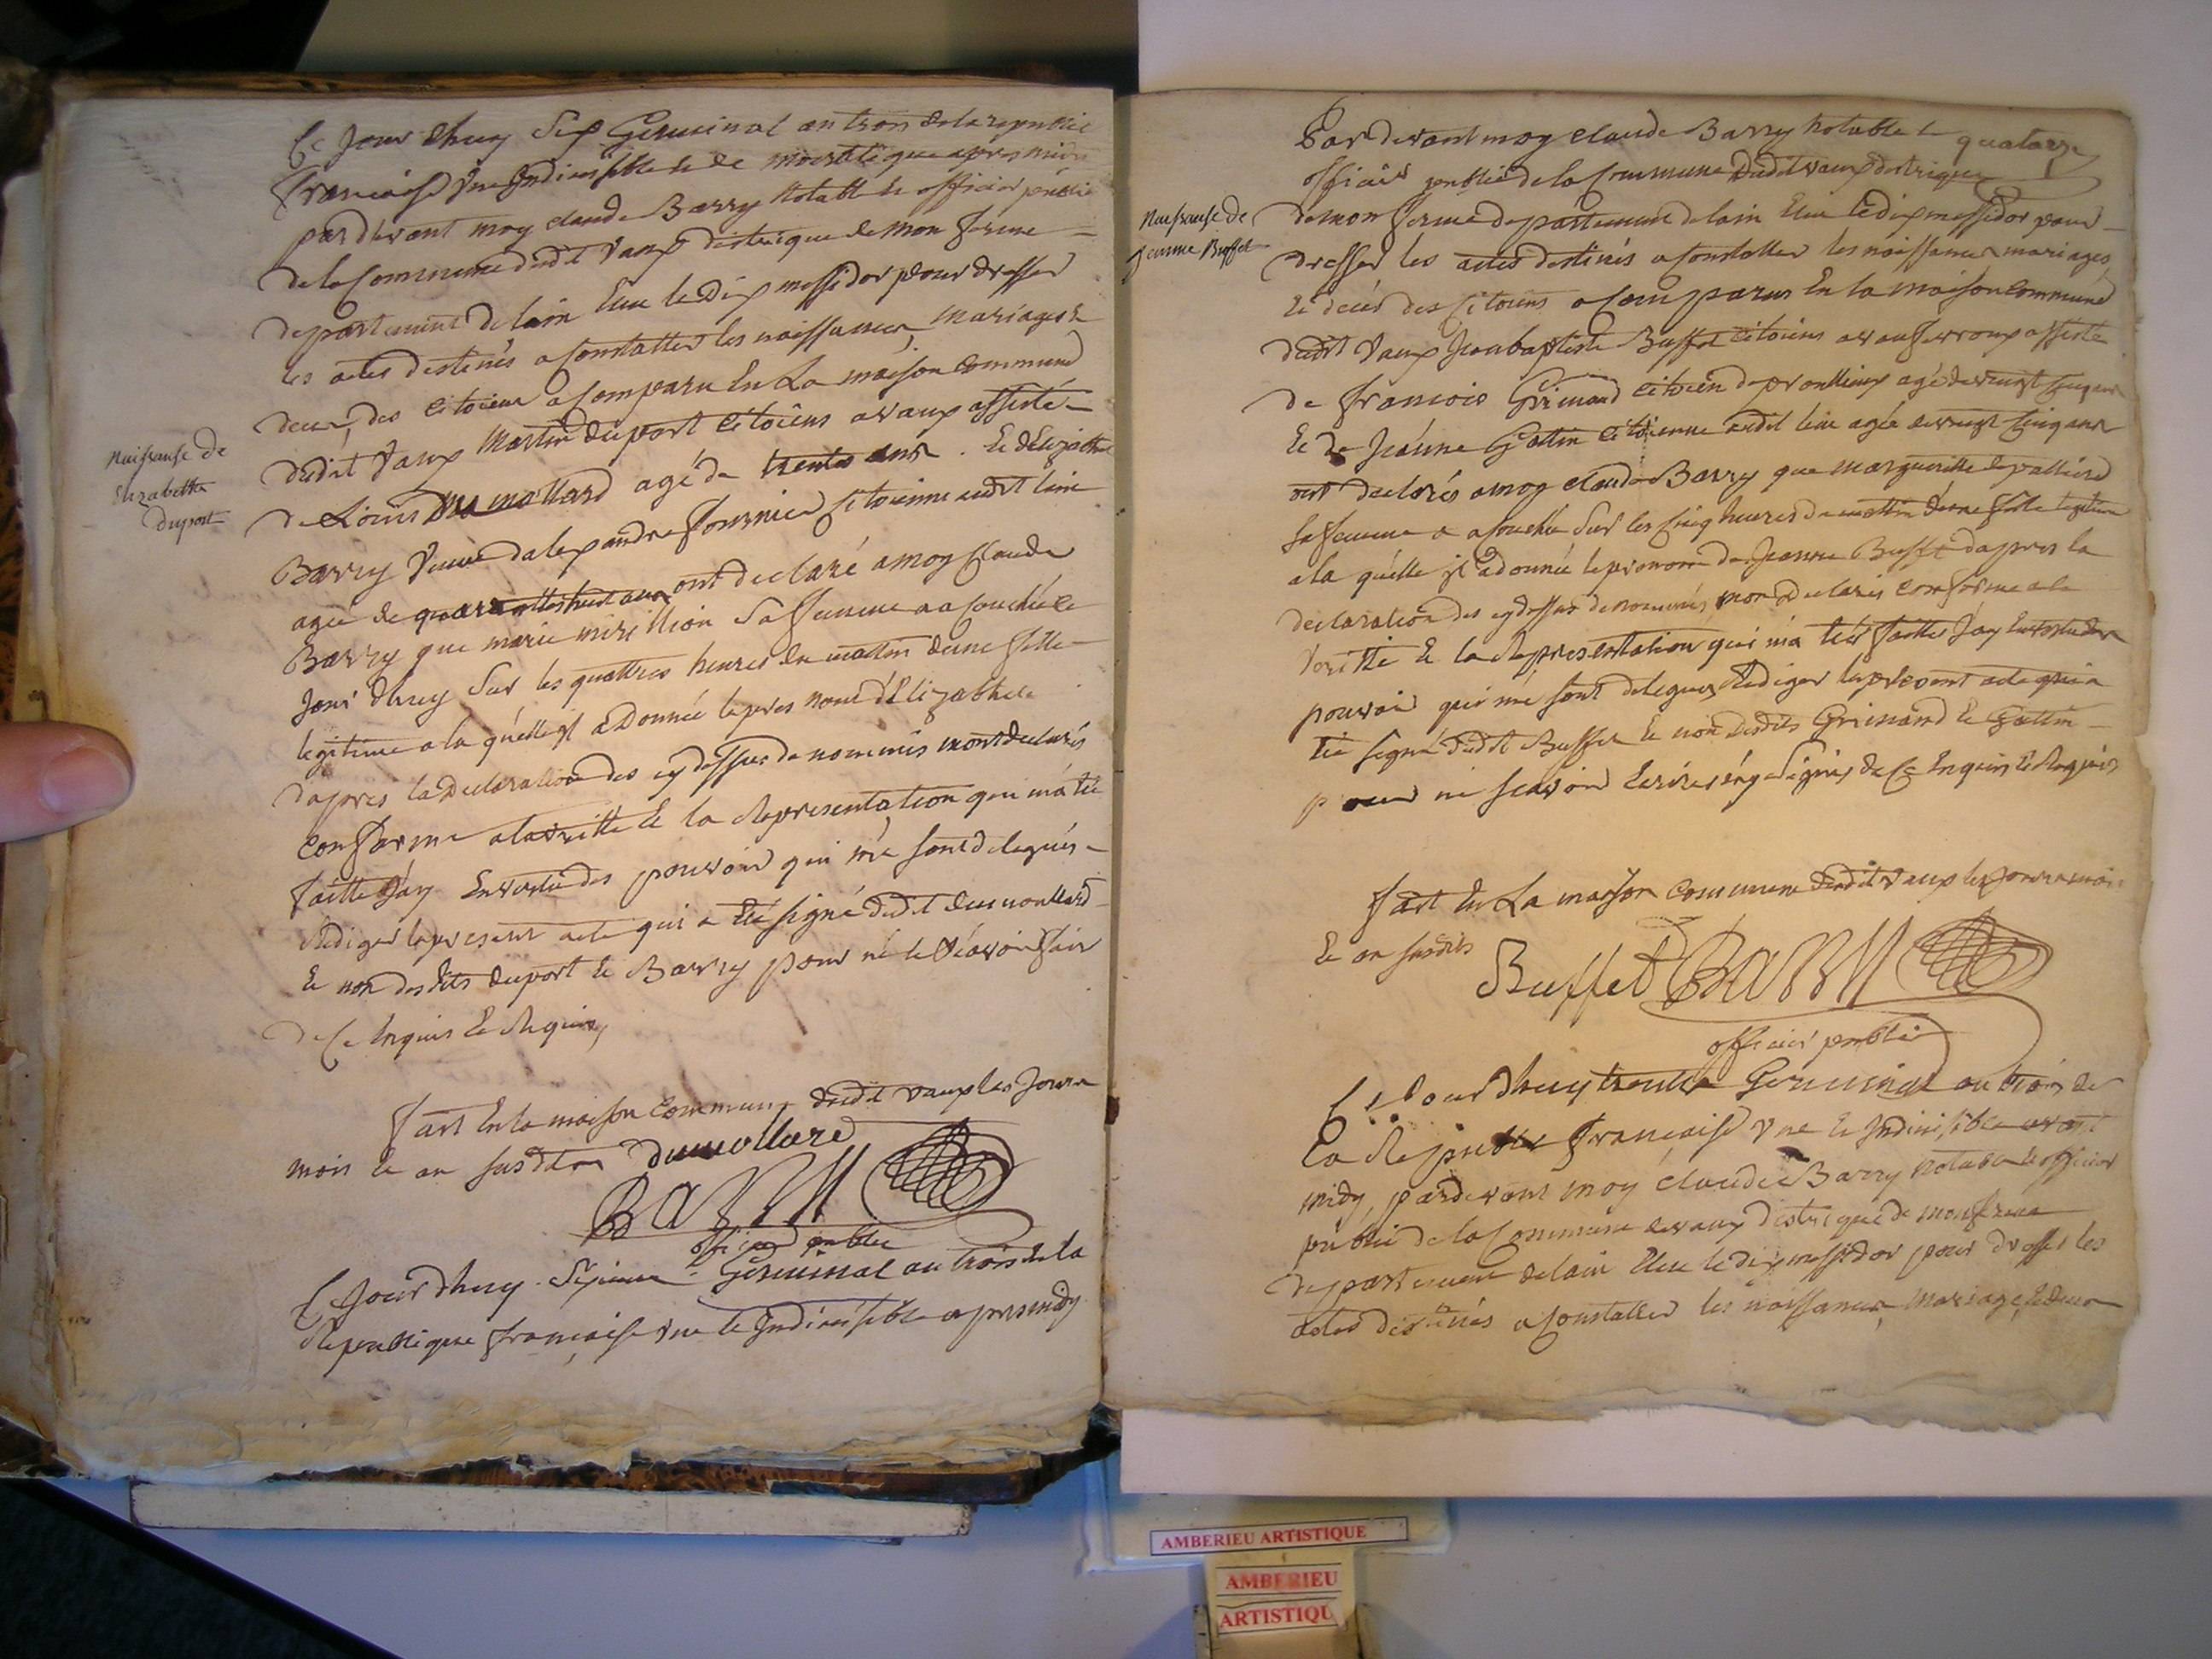 Ce Jour dhuy Six Germinal an trois de la republic
francaise Une Indivisible et de après midi
pardevant moy claude Barry Notable et officier public
de la Commune dudit Vaux districque de mon ferme
departement de lain Elue le dix messidor pour dresser
les actes destinés a Constatter les naissances, Mariages et
deces, des Citoiens a Comparu En La maison Commune
dudit Vaux Martin duport Citoiens a vaux assisté
de Louis Dumollard agé de trentes ans. Et dElizabethe
Barry Veuve dalexandre fournier Citoienne audit lieu
agée de quarantte huit ans ont declaré a moy Claude
Barry que marie mirillion Sa femme a acouchée le
Jour dhuy Sur les quattres heures du mattin deune fille
legitime a la quélle il a donnée le pres nom d'Elizabethe
dapres la declaration des cy dessus de nommés mont declarés
conforme a la veritte Et la Representation qui ma té
faitte Jay En vertu des pouvoir qui mé sont delegués
Rediger le present acte qui a Eté signé dudit dumollard
Et non desdits duport Et Barry pour né le scavoir fair
de Ce Enquis Et Requis,
Naissanse de
Elizabethe
duport
fait En la maison Commune dudit vaux les Jour
mois Et an susdit dumollard
BARRY
officier public
Ce Jour dhuy Germinal an trois de la
Republique francaise une Et Indivisible apres midy
quatorze
Par devant moy claude Barry Notable Et
officier public de la Commune dudit vaux districque
de mon ferme departement de lain Elue le dix messidor pour
dresser les actes destinés a Constatter les naissances mariages
Et décés des Citoiens a Comparus En la maison Commune
dudit Vaux Jeanbaptiste Buffet Citoiens a vaux assisté
de francois Grimand Citoien agé de vingt Cinq ans
Et de Jeanne Gottin Citoienne audit lieu agée de vingt Cinq ans
ont declarés a moy claude Barry que margueritte
Sa femme a acouchée Sur les Cinq heures du mattin deune fille legitime
a la quélle il a donnée le pronom de Jeanne Buffet dapres la
declaration des cy dessus denommés, mon declarés conforme a la
Veritté Et la Representation qui ma téé faitte Jay En vertu des
pouvoir qui mé sont delegués Rediger le present acte qui a
tée signé dudit Buffet Et non desdits Grimand Et Gottin
pour né scavoir Ecrire né Signer de Ce Enquis Et Requis
Naissanse de
Jeanne Buffet
fait En La maison Commune dudit vaux les Jour mois
Et an susdits
Buffet BARRY
officier public
Ce Jour dhuy trentte Germinal an trois de
la Republi francaise Une Et Indivisible avant
midy, pardevant moy claude Barry notable Et officier
public de la Commune de vaux districque de mon ferme
departement de lain Elue le dix messidor pour dresser les
actes destinés a Constatter les naissances, Mariages, Et deces
AMBERIEU ARTISTIQUE
AMBERIEU
ARTISTIQU